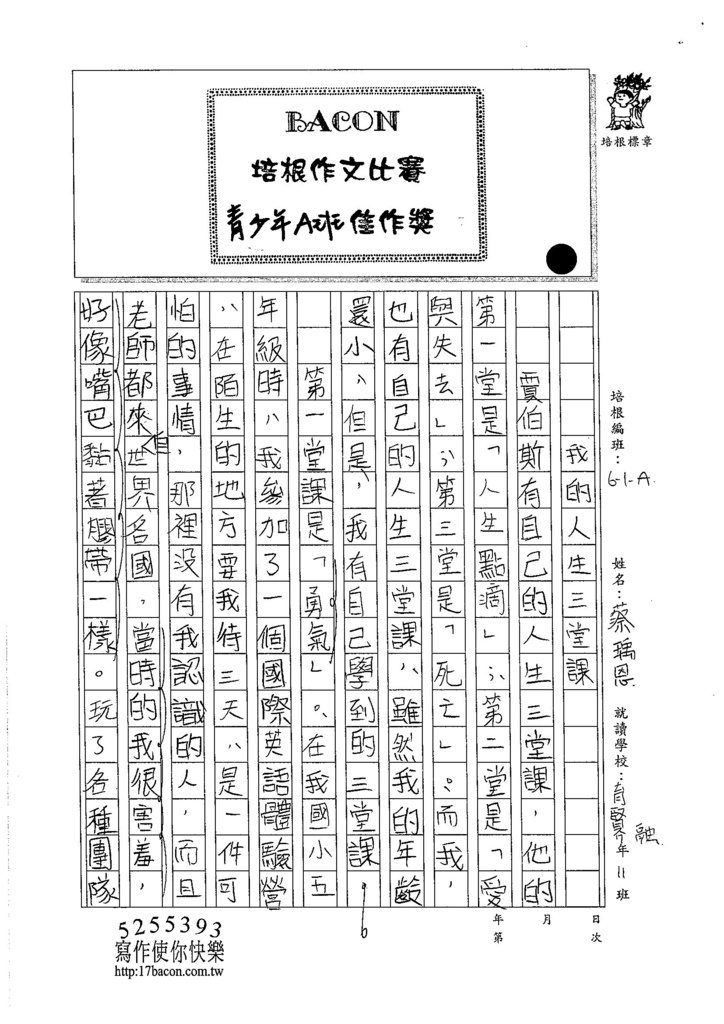 BACON
培根作文比賽
青少年A班佳作獎
培根標章
培根編班：61-A
姓名：蔡瑀恩
就讀學校：育賢 年11班
融
年 月 日
第 次
我的人生三堂課
賈伯斯有自己的人生三堂課，他的
第一堂是「人生點滴」；第二堂是「愛
與失去」；第三堂是「死亡」。而我，
也有自己的人生三堂課，雖然我的年齡
還小，但是，我有自己學到的三堂課。
第一堂課是「勇氣」。在我國小五
年級時，我參加了一個國際英語體驗營
，在陌生的地方要我待三天，是一件可
怕的事情，那裡沒有我認識的人，而且
老師都來自世界各國，當時的我很害羞，
好像嘴巴黏著膠帶一樣。玩了各種團隊
6
5255393
寫作使你快樂
http:17bacon.com.tw